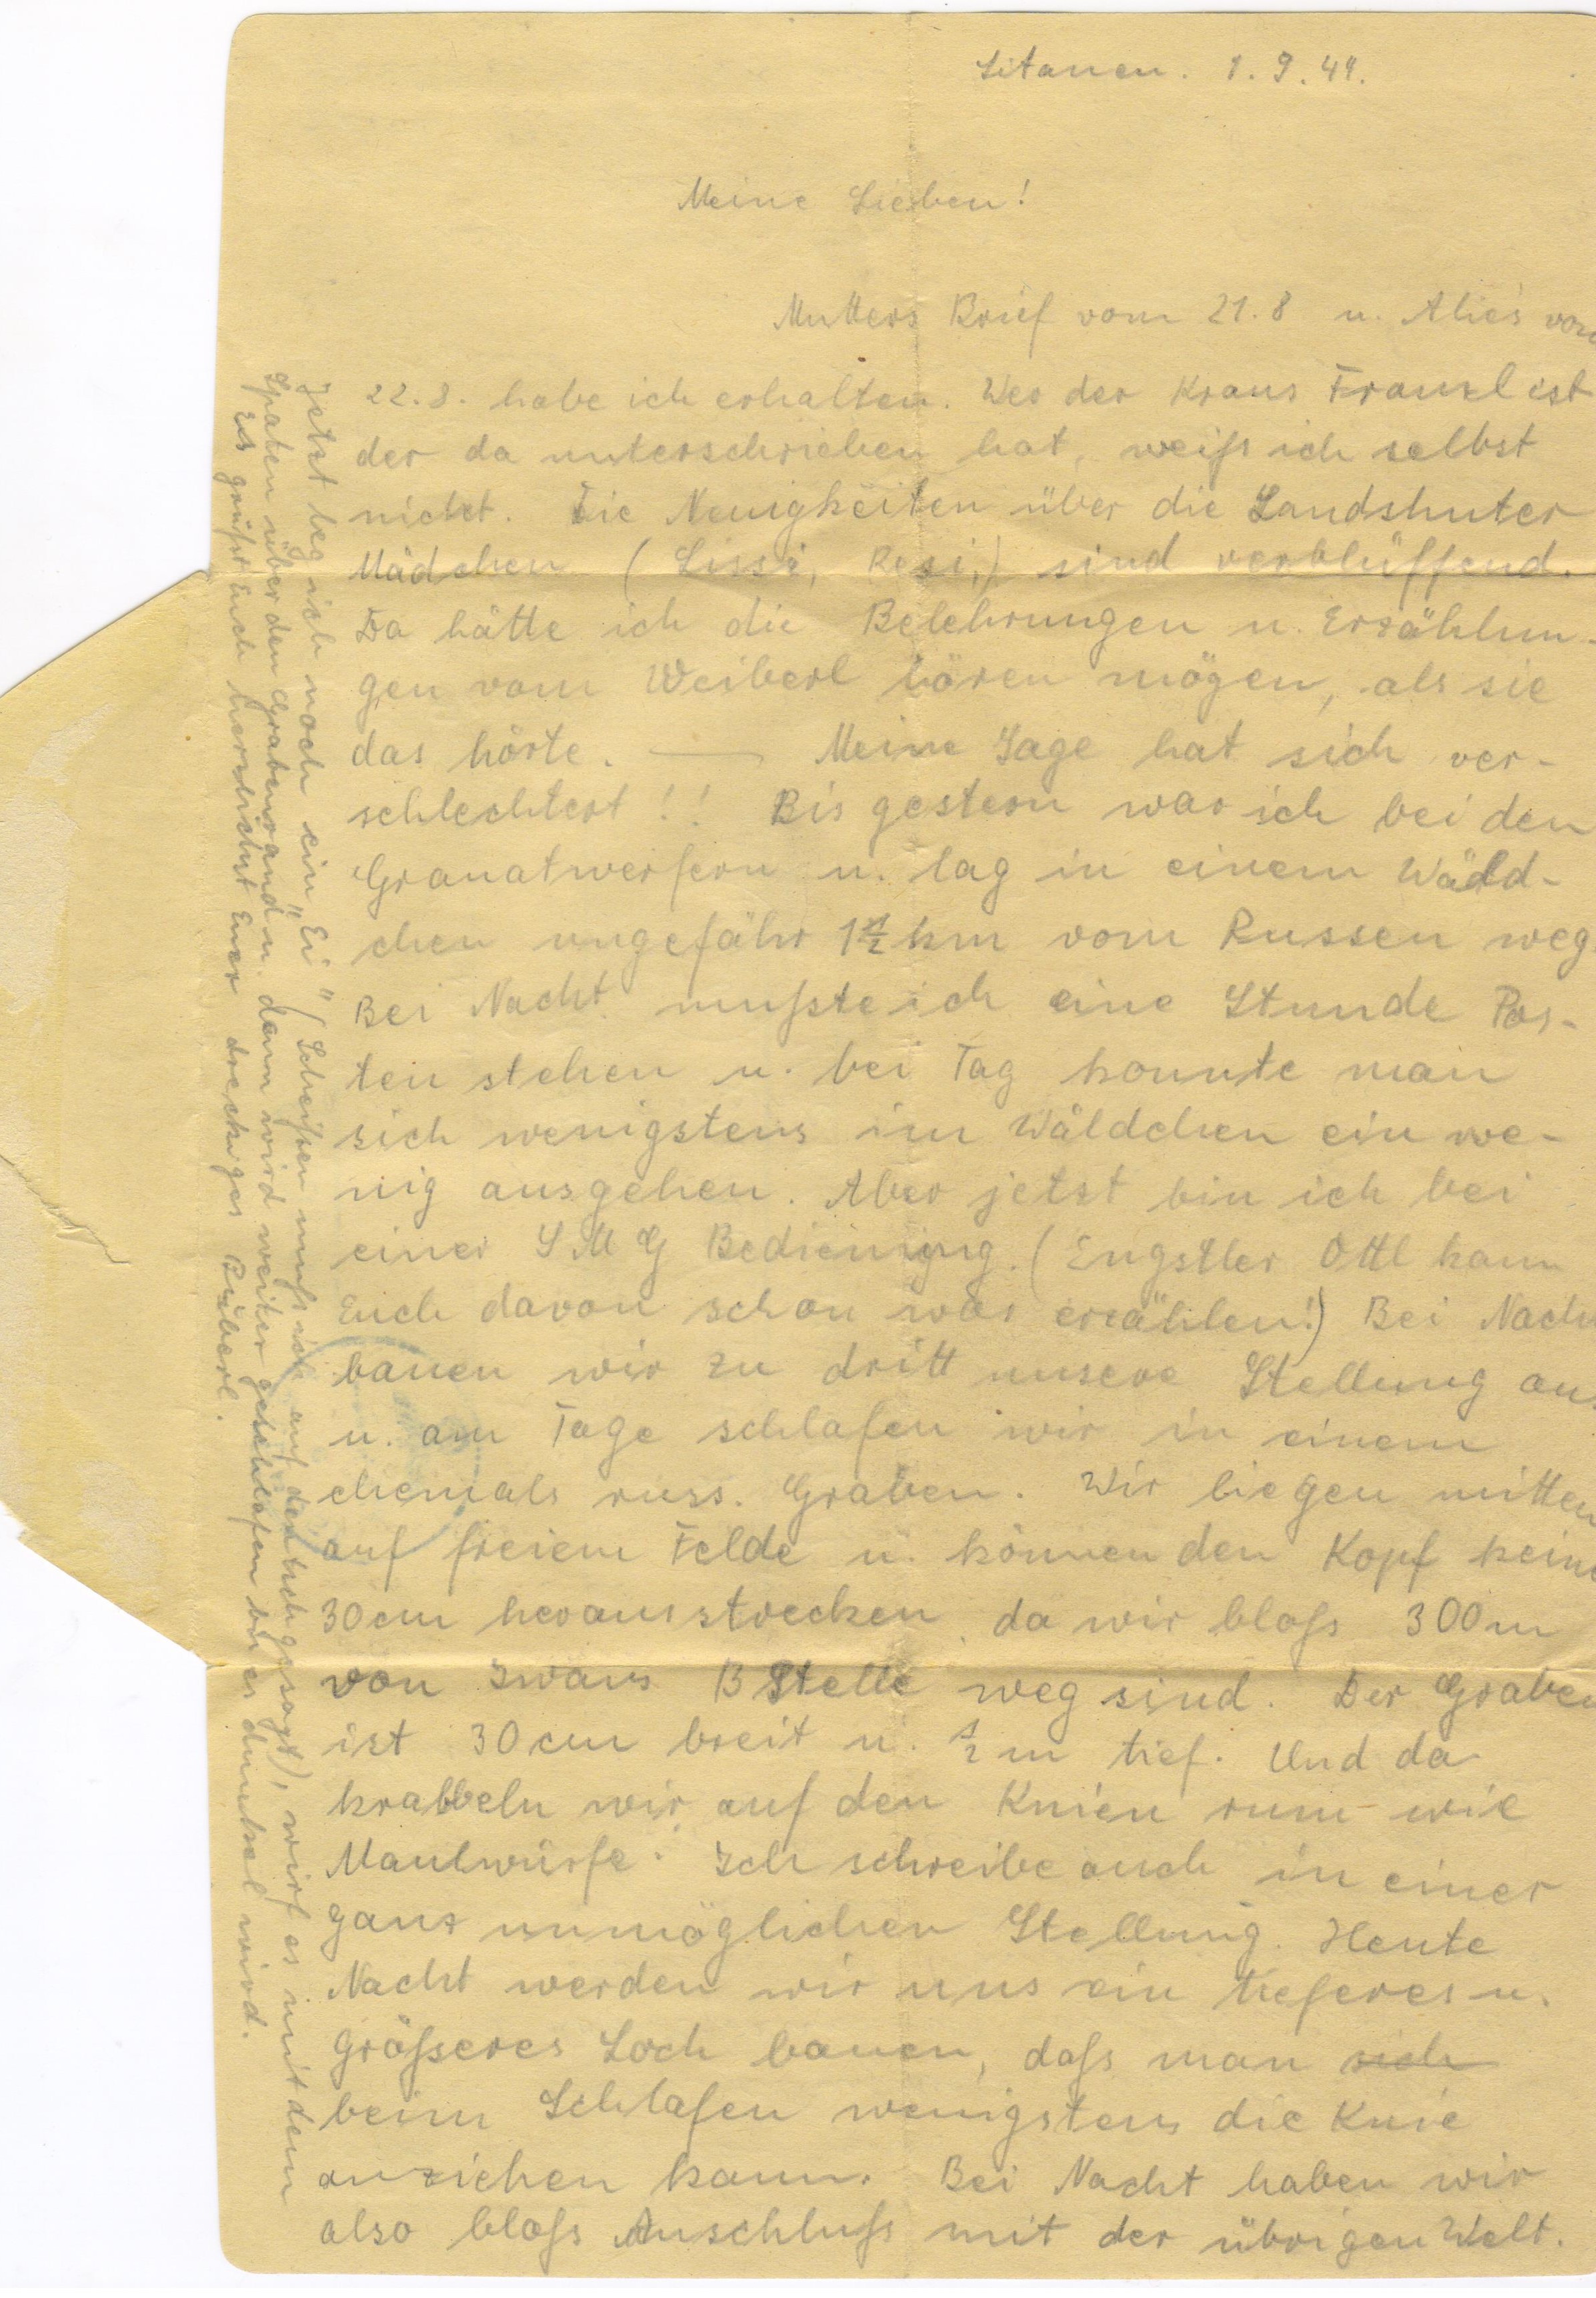 Litauen. 1.9.44.
Meine Lieben!
Mutters Brief vom 21.8 u. Alies vom
22.8. habe ich erhalten. Wer der Kraus Franzl ist
der da unterschrieben hat, weiß ich selbst
nicht. Die Neuigkeiten über die Landshuter
Mädchen (Lissi, Resi,) sind verblüffend.
Da hätte ich die Belehrungen u. Erzählun-
gen vom Weiberl hören mögen, als sie
das hörte. — Meine Lage hat sich ver-
schlechtert!! Bis gestern war ich bei den
Granatwerfern u. lag in einem Wäld-
chen ungefähr 1½ km vom Russen weg
Bei Nacht mußte ich eine Stunde Pos-
ten stehen u. bei Tag konnte man
sich wenigstens im Wäldchen ein we-
nig ausgehen. Aber jetzt bin ich bei
einer SMG Bedienung. (Engstler Ottl kann
Euch davon schon was erzählen!) Bei Nach
bauen wir zu dritt unsere Stellung aus
u. am Tage schlafen wir in einem
ehemals russ. Graben. Wir liegen mitten
auf freiem Felde u. können den Kopf keine
30cm herausstrecken da wir bloß 300m
von Iwans B Stelle weg sind. Der Graben
ist 30cm breit u. ½ m tief. Und da
krabbeln wir auf den Knien rum wie
Maulwürfe. Ich schreibe auch in einer
ganz unmöglichen Stellung. Heute
Nacht werden wir uns ein tieferes u.
größeres Loch bauen, daß man sich
beim Schlafen wenigstens die Knie
anziehen kann. Bei Nacht haben wir
also bloß Anschluß mit der übrigen Welt.
Jetzt leg ich noch ein „Ei" (Scheißen muß ich auf deutsch gesagt), wirf es mit dem
Spaten über den Grabenrand u. dann wird weiter geschlafen bis es dunkel wird.
Es grüßt Euch herzlichst Euer dreckiges Büberl.